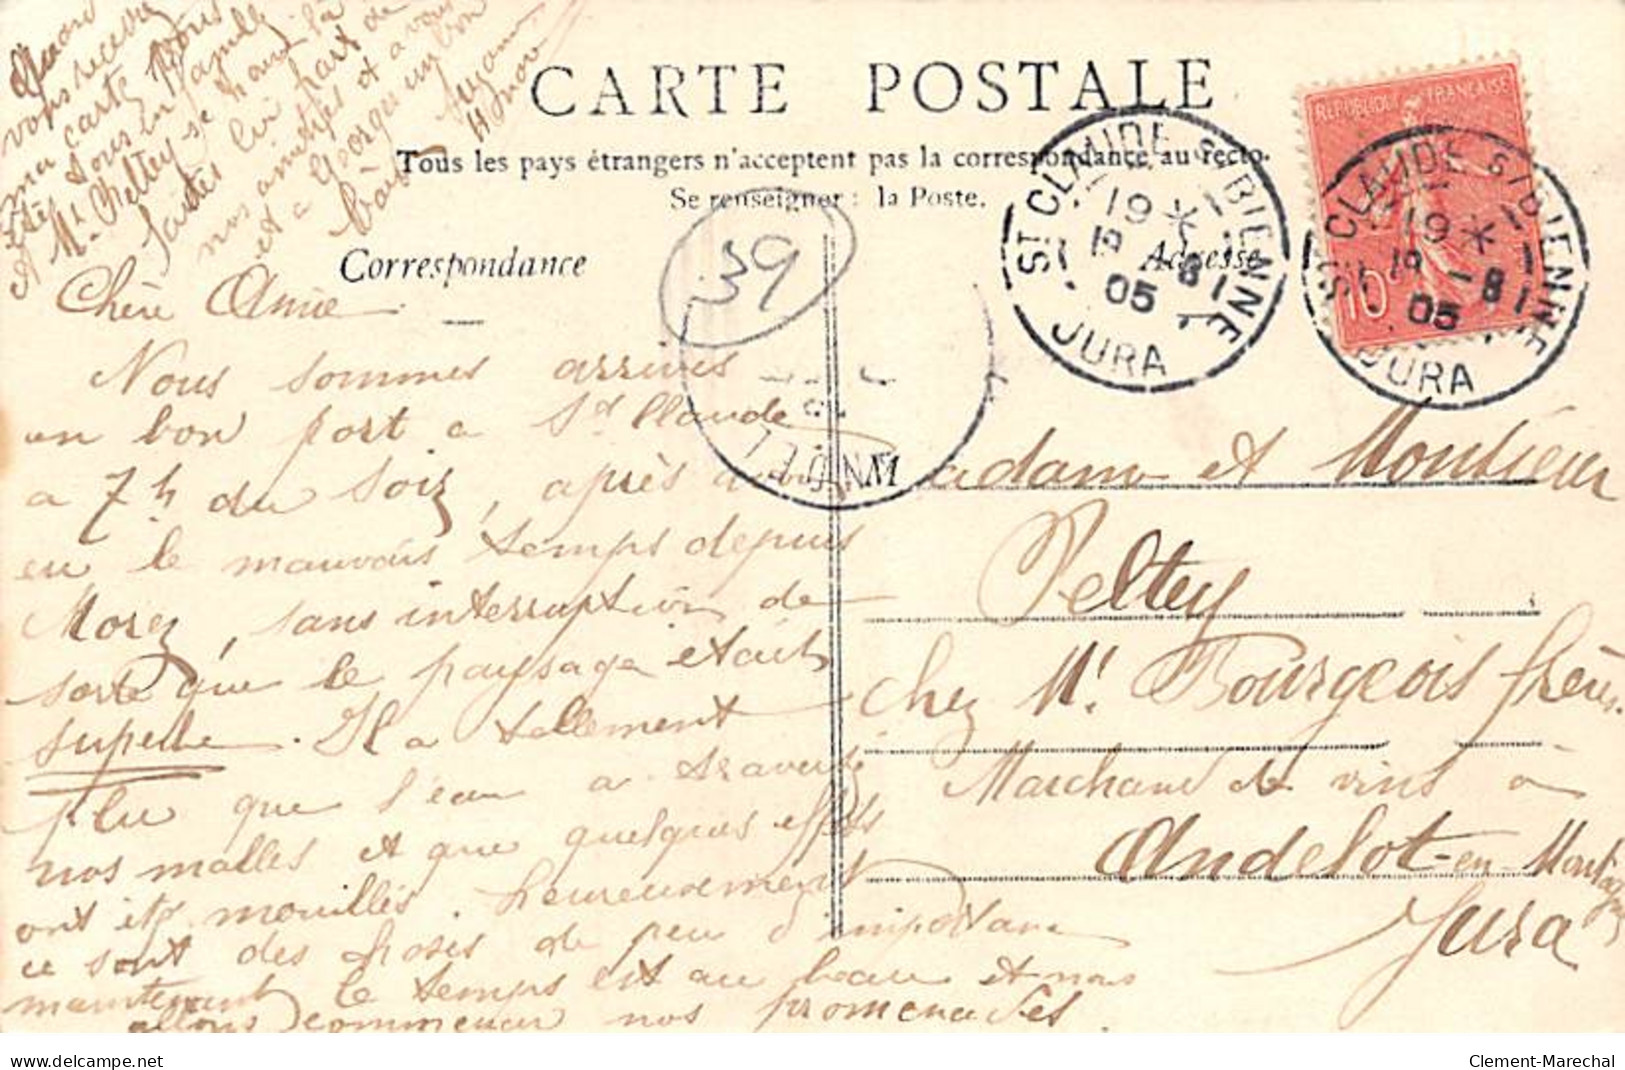 Quand
vous recevrez
ma carte vous
tous en famille
A Mr Peltey se
faites lui part de
nos amitiés et a vous
et a Georges un bon
baiser
CARTE POSTALE
Tous les pays étrangers n'acceptent pas la correspondance au recto.
Se renseigner : la Poste.
Correspondance
Adresse
39
ST CLAUDE S/BIENNE
19 * 1
19 -8
05
JURA
REPUBLIQUE FRANÇAISE
10
ST CLAUDE S/BIENNE
19 * 1
19 -8
05
JURA
Chère Anna
Nous sommes arrivés
en bon port a St Claude
a 7h du soir, après avoir
eu le mauvais temps depuis
Morez, sans interruption de
sorte que le paysage etait
superbe. Il a tellement
plu que l'eau a traversé
nos malles et que quelques effets
ont été mouillés. heureusement
ce sont des choses de peu d'importance
maintenant le temps est au beau et nous
allons commencer nos promenades.
Madame et Monsieur
Peltey
chez Mr Bourgeois frères
Marchand de vins à
Andelot-en-Montagne
Jura
delcampe.net
Clement-Marechal